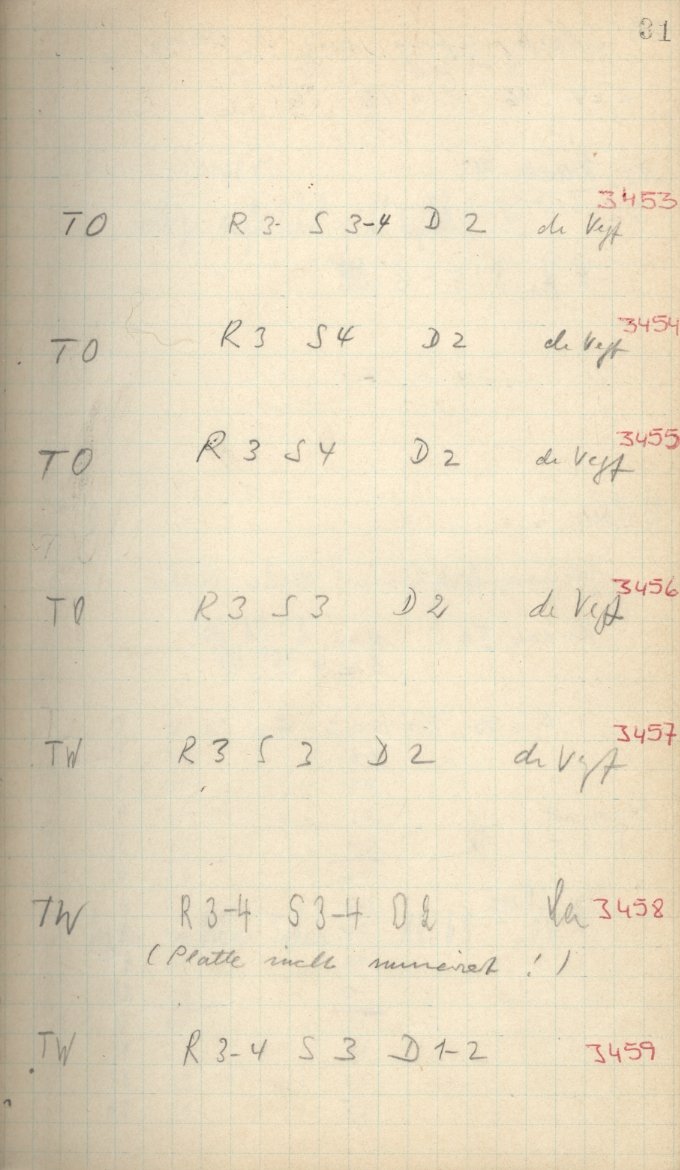 31
3453
TO R 3- S 3-4 D 2 de Vegt
3454
TO R 3 S 4 D 2 de Vegt
3455
TO R 3 S 4 D 2 de Vegt
3456
TO R 3 S 3 D 2 de Vegt
3457
TW R 3 S 3 D 2 de Vegt
TW R 3-4 S 3-4 D 2 3458
(Platte nicht numeriert !)
TW R 3-4 S 3 D 1-2 3459